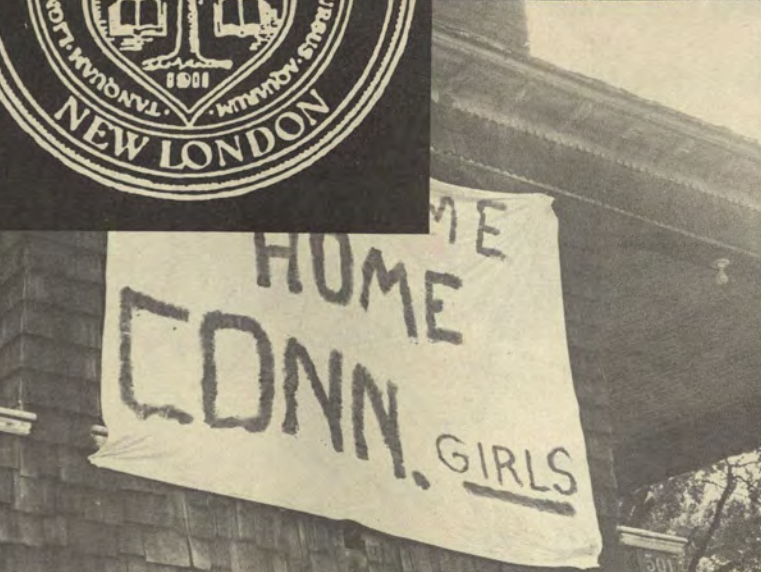 TANQUAM LIGN
URSUS·AQUARUM
1911
NEW LONDON
ME
HOME
CONN.
GIRLS
501